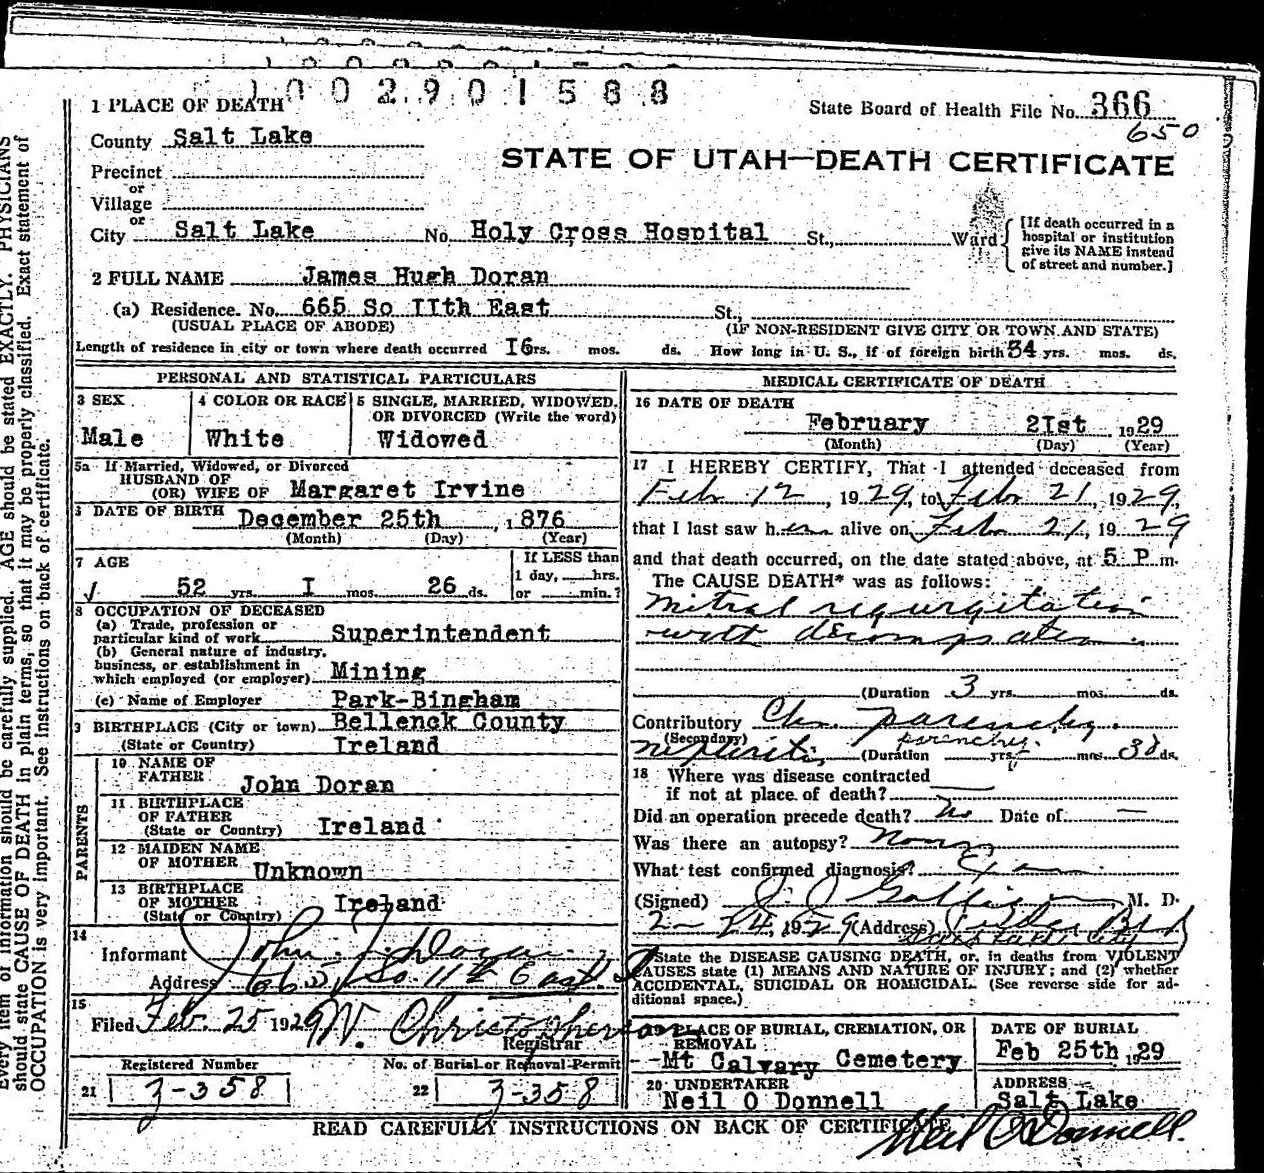 1002901588
1 PLACE OF DEATH
State Board of Health File No. 366
650
County Salt Lake
STATE OF UTAH—DEATH CERTIFICATE
Precinct
or
Village
or
City Salt Lake No. Holy Cross Hospital St., Ward
[If death occurred in a hospital or institution give its NAME instead of street and number.]
2 FULL NAME James Hugh Doran
(a) Residence. No. 665 So IIth East St.,
(USUAL PLACE OF ABODE) (IF NON-RESIDENT GIVE CITY OR TOWN AND STATE)
Length of residence in city or town where death occurred I6 rs. mos. ds. How long in U. S., if of foreign birth 34 yrs. mos. ds.
PERSONAL AND STATISTICAL PARTICULARS
3 SEX
Male
4 COLOR OR RACE
White
5 SINGLE, MARRIED, WIDOWED, OR DIVORCED (Write the word)
Widowed
5a If Married, Widowed, or Divorced
HUSBAND OF
(OR) WIFE OF Margaret Irvine
6 DATE OF BIRTH December 25th, 1876
(Month) (Day) (Year)
7 AGE
52 yrs. I mos. 26 ds.
If LESS than
1 day, hrs.
or min.?
8 OCCUPATION OF DECEASED
(a) Trade, profession or
particular kind of work Superintendent
(b) General nature of industry,
business, or establishment in
which employed (or employer) Mining
(c) Name of Employer Park-Bingham
9 BIRTHPLACE (City or town) Bellenck County
(State or Country) Ireland
PARENTS
10 NAME OF
FATHER John Doran
11 BIRTHPLACE
OF FATHER
(State or Country) Ireland
12 MAIDEN NAME
OF MOTHER Unknown
13 BIRTHPLACE
OF MOTHER
(State or Country) Ireland
14
Informant John J. Doran
Address 665 So 11th East
15
Filed Feb. 25 1929 W. Christopherson
Registrar
Registered Number
21 3-358
No. of Burial or Removal Permit
22 3-358
MEDICAL CERTIFICATE OF DEATH
16 DATE OF DEATH
February 2Ist, 1929
(Month) (Day) (Year)
17 I HEREBY CERTIFY, That I attended deceased from
Feb 12, 1929, to Feb 21, 1929,
that I last saw him alive on Feb 21, 1929
and that death occurred, on the date stated above, at 5 P. m.
The CAUSE DEATH* was as follows:
Mitral regurgitation
with
(Duration 3 yrs. mos. ds.
Contributory Chr. parenchy.
(Secondary) parenchy.
nephritis (Duration yrs. mos. 30 ds.
18 Where was disease contracted
if not at place of death?
Did an operation precede death? No Date of
Was there an autopsy?
What test confirmed diagnosis?
(Signed) J. J. M. D.
2-24, 1929 (Address)
Salt Lake City
*State the DISEASE CAUSING DEATH, or, in deaths from VIOLENT
CAUSES state (1) MEANS AND NATURE OF INJURY; and (2) whether
ACCIDENTAL, SUICIDAL OR HOMICIDAL. (See reverse side for ad-
ditional space.)
19 PLACE OF BURIAL, CREMATION, OR
REMOVAL
Mt Calvary Cemetery
DATE OF BURIAL
Feb 25th 1929
20 UNDERTAKER
Neil O Donnell
ADDRESS
Salt Lake
Neil O'Donnell.
READ CAREFULLY INSTRUCTIONS ON BACK OF CERTIFICATE
Every item of information should be carefully supplied. AGE should be stated EXACTLY. PHYSICIANS
should state CAUSE OF DEATH in plain terms, so that it may be properly classified. Exact statement of
OCCUPATION is very important. See instructions on back of certificate.